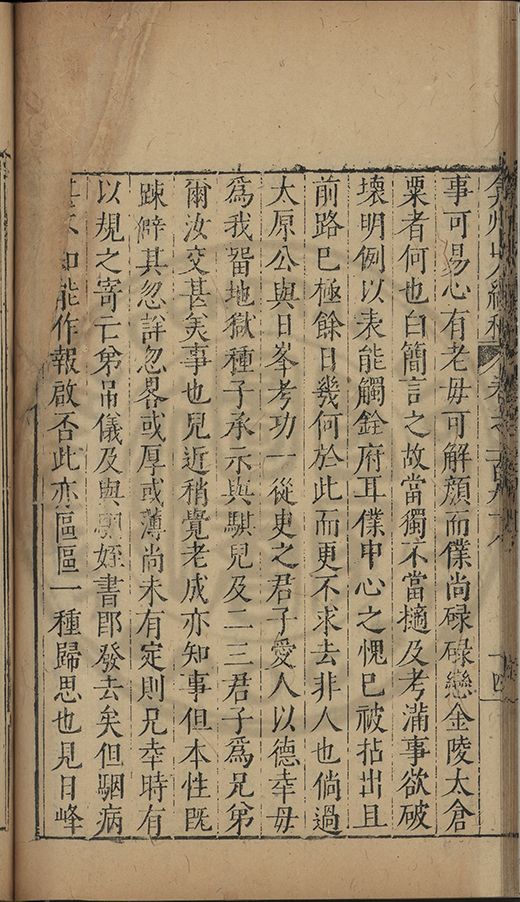 弇州山人續稿 卷之一百 十四
事可昜心有老毋可解顏而僕尚碌碌戀金陵太倉
粟者何也白簡言之故當獨不當擿及考滿事欲破
壞明例以表能觸銓府耳僕中心之愧巳被拈出且
前路巳極餘日幾何於此而更不求去非人也倘過
太原公與日峯考功一從臾之君子愛人以德幸毋
爲我畱地獄種子承示與騏兒及二三君子爲兄弟
爾汝交甚矣事也兒近稍覺老成亦知事但本性旣
踈僻其忽詳忽畧或厚或薄尚未有定則兄幸時有
以規之寄亡弟吊儀及與姪書郎發去矣但駰病
甚不知能作報啟否此亦區區一種歸思也見日峰